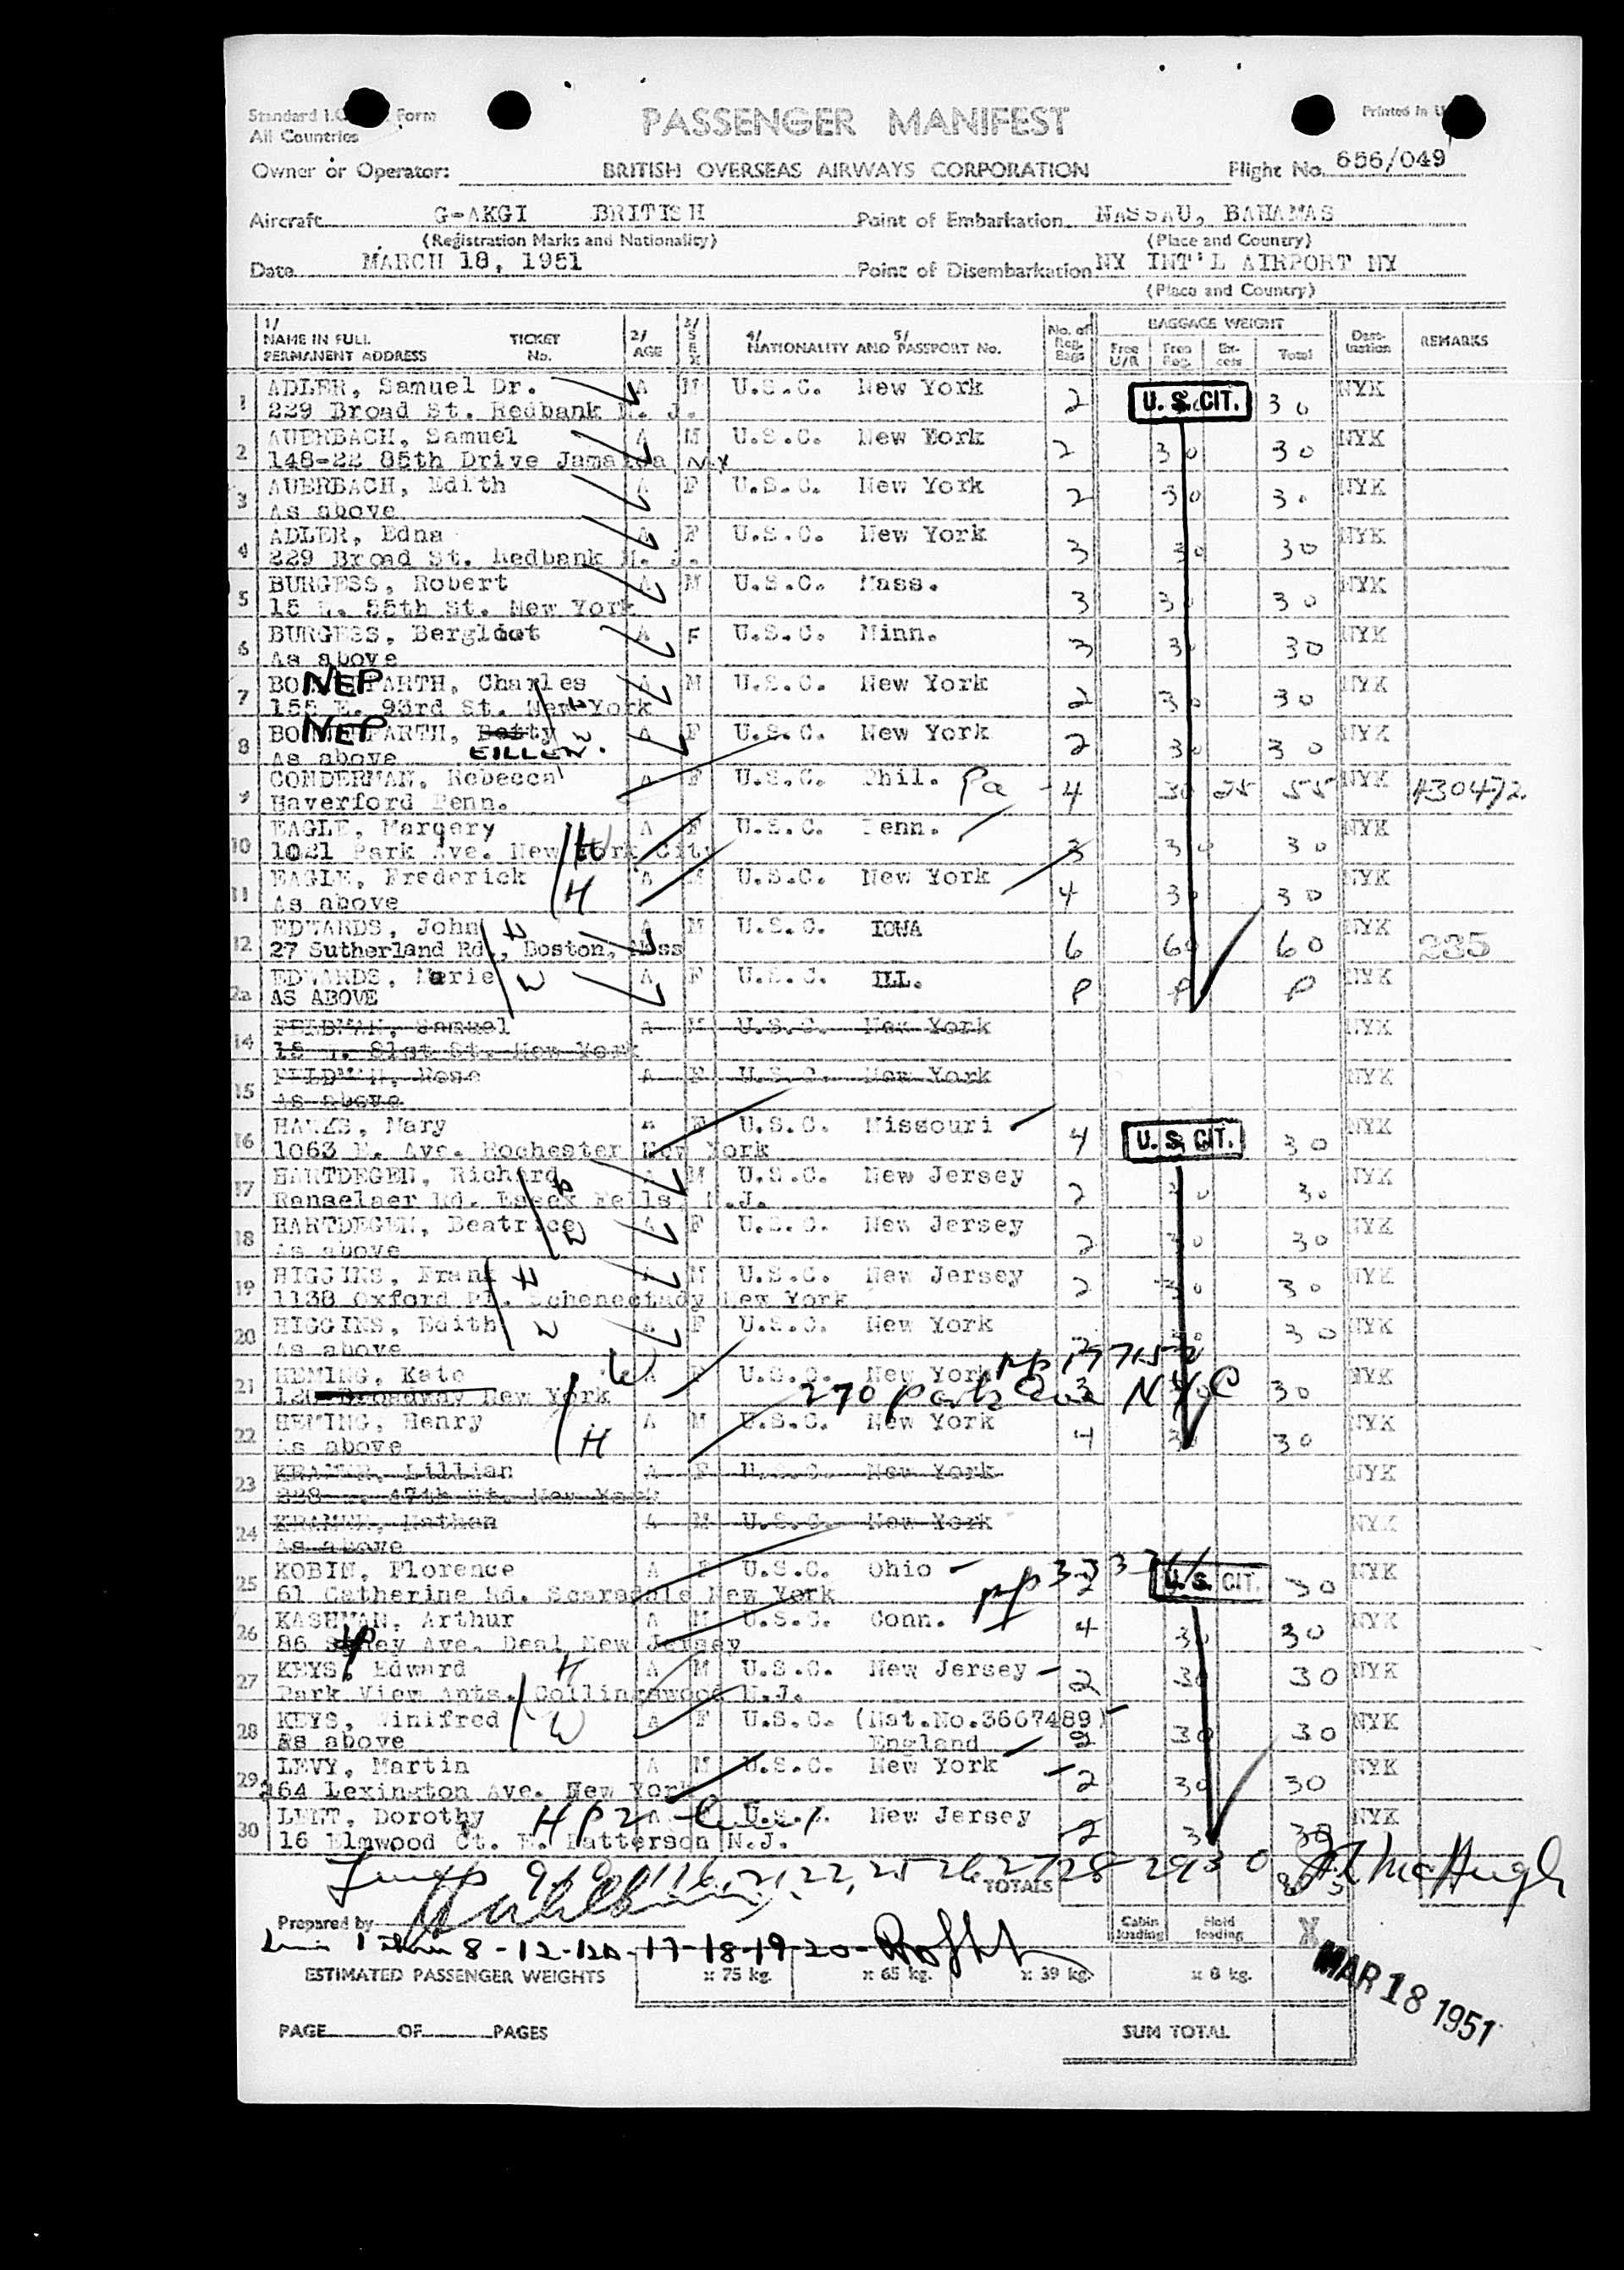 Standard I.C Form
All Countries
PASSENGER MANIFEST
Printed in U
Owner or Operator: BRITISH OVERSEAS AIRWAYS CORPORATION Flight No. 656/049
Aircraft G-AKGI BRITISH Point of Embarkation NASSAU, BAHAMAS
(Registration Marks and Nationality) (Place and Country)
Date MARCH 18, 1951 Point of Disembarkation NY INT'L AIRPORT NY
(Place and Country)
1/ NAME IN FULL PERMANENT ADDRESS TICKET No. 2/ AGE 3/ SEX 4/ 5/ NATIONALITY AND PASSPORT No. No. of Reg. Bags BAGGAGE WEIGHT Free U/R Free Reg. Ex-cess Total Dest-ination REMARKS
1 ADLER, Samuel Dr. A M U.S.C. New York 2 U. S. CIT. 30 NYK
229 Broad St. Redbank N. J.
2 AUERBACH, Samuel A M U.S.C. New Eork 2 30 30 NYK
148-22 85th Drive Jamaica NY
3 AUERBACH, Edith A F U.S.C. New York 2 30 30 NYK
As above
4 ADLER, Edna A F U.S.C. New York 3 30 30 NYK
229 Broad St. Redbank N. J.
5 BURGESS, Robert A M U.S.C. Mass. 3 30 30 NYK
15 E. 55th St. New York
6 BURGESS, Bergliot A F U.S.C. Minn. 3 30 30 NYK
As above
7 BONNEPARTH, Charles A M U.S.C. New York 2 30 30 NYK
155 E. 93rd St. New York
8 BONNEPARTH, Betty A F U.S.C. New York 2 30 30 NYK
As above EILLEN.
9 CONDERMAN, Rebecca A F U.S.C. Phil. Pa 4 30 25 55 NYK
Haverford Penn.
10 EAGLE, Margery W A F U.S.C. Penn. 3 30 30 NYK
1021 Park Ave. New York City
11 EAGLE, Frederick H A M U.S.C. New York 4 30 30 NYK
As above
12 EDWARDS, John H A M U.S.C. IOWA 6 60 60 NYK 235
27 Sutherland Rd., Boston, Mass
12a EDWARDS, Marie W A F U.S.C. ILL. P P P NYK
AS ABOVE
14 FELDMAN, Samuel A M U.S.C. New York NYK
15 W. 81st St. New York
15 FELDMAN, Rose A F U.S.C. New York NYK
As above
16 HAWKS, Mary A F U.S.C. Missouri 4 U. S. CIT. 30 NYK
1063 E. Ave. Rochester New York
17 HARTDEGEN, Richard H A M U.S.C. New Jersey 2 30 30 NYK
Ranselaer Rd. Essex Fells N.J.
18 HARTDEGEN, Beatrice W A F U.S.C. New Jersey 2 30 30 NYK
As above
19 HIGGINS, Frank H A M U.S.C. New Jersey 2 30 30 NYK
1138 Oxford Pl. Schenectady New York
20 HIGGINS, Edith W A F U.S.C. New York 30 NYK
As above
21 HEMING, Kate W A F U.S.C. New York 3 30 30 NYK
120 Broadway New York 270 Park Ave NYC
22 HEMING, Henry H A M U.S.C. New York 4 30 30 NYK
As above
23 KRAMER, Lillian A F U.S.C. New York NYK
47th St. New York
24 KRAMER, Nathan A M U.S.C. New York NYK
As above
25 KOBIN, Florence A F U.S.C. Ohio 2 U. S. CIT. 30 NYK
61 Catherine Rd. Scarsdale New York
26 KASHMAN, Arthur A M U.S.C. Conn. 4 30 30 NYK
86 Ave. Deal New Jersey
27 KEYS, Edward H A M U.S.C. New Jersey 2 30 30 NYK
Park View Apts. Collingswood N.J.
28 KEYS, Winifred W A F U.S.C. (Nat.No.3667489) 2 30 30 NYK
As above England
29 LEVY, Martin A M U.S.C. New York 2 30 30 NYK
Lexington Ave. New York
30 LENT, Dorothy A U.S.C. New Jersey 2 30 30 NYK
16 Elmwood Ct. E. Patterson N.J.
9, 10, 11, 16, 21, 22, 25 26 27 28 29 30
TOTALS
Prepared by
Cabin loading Hold loading
Line 1 thru 8 - 12 - 12a - 17 - 18 - 19 - 20
ESTIMATED PASSENGER WEIGHTS x 75 kg. x 65 kg. x 39 kg. x 8 kg.
MAR 18 1951
PAGE OF PAGES SUM TOTAL